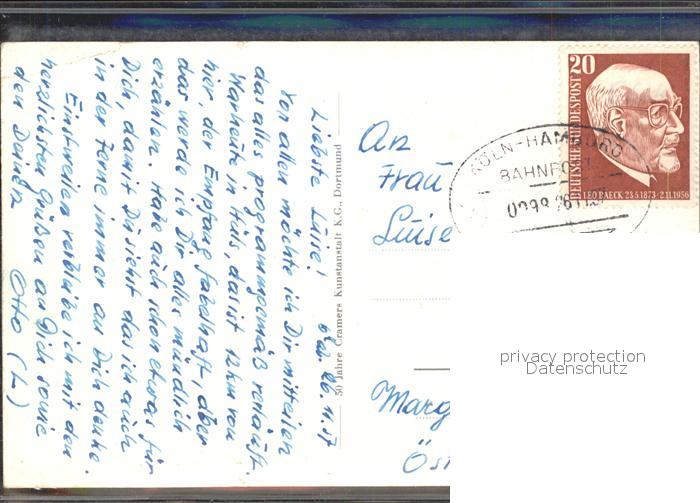 20
DEUTSCHE BUNDESPOST
LEO BAECK 23.5.1873-2.11.1956
KÖLN-HAMBURG
BAHNPOST
An
Frau
Luise
Marg
Ös
privacy protection
Datenschutz
50 Jahre Cramers Kunstanstalt K.G., Dortmund
26.11.57
Liebste Luise!
Vor allem möchte ich Dir mitteilen
das alles programmgemäß verläuft.
War heute in Hüls, das ist 12km von
hier, der Empfang fabelhaft, aber
das werde ich Dir alles mündlich
erzählen. Habe auch schon etwas für
Dich, damit Du siehst das ich auch
in der Ferne immer an Dich denke.
Einstweilen verbleibe ich mit den
herzlichsten Grüßen an Dich sowie
den
Otto (L)